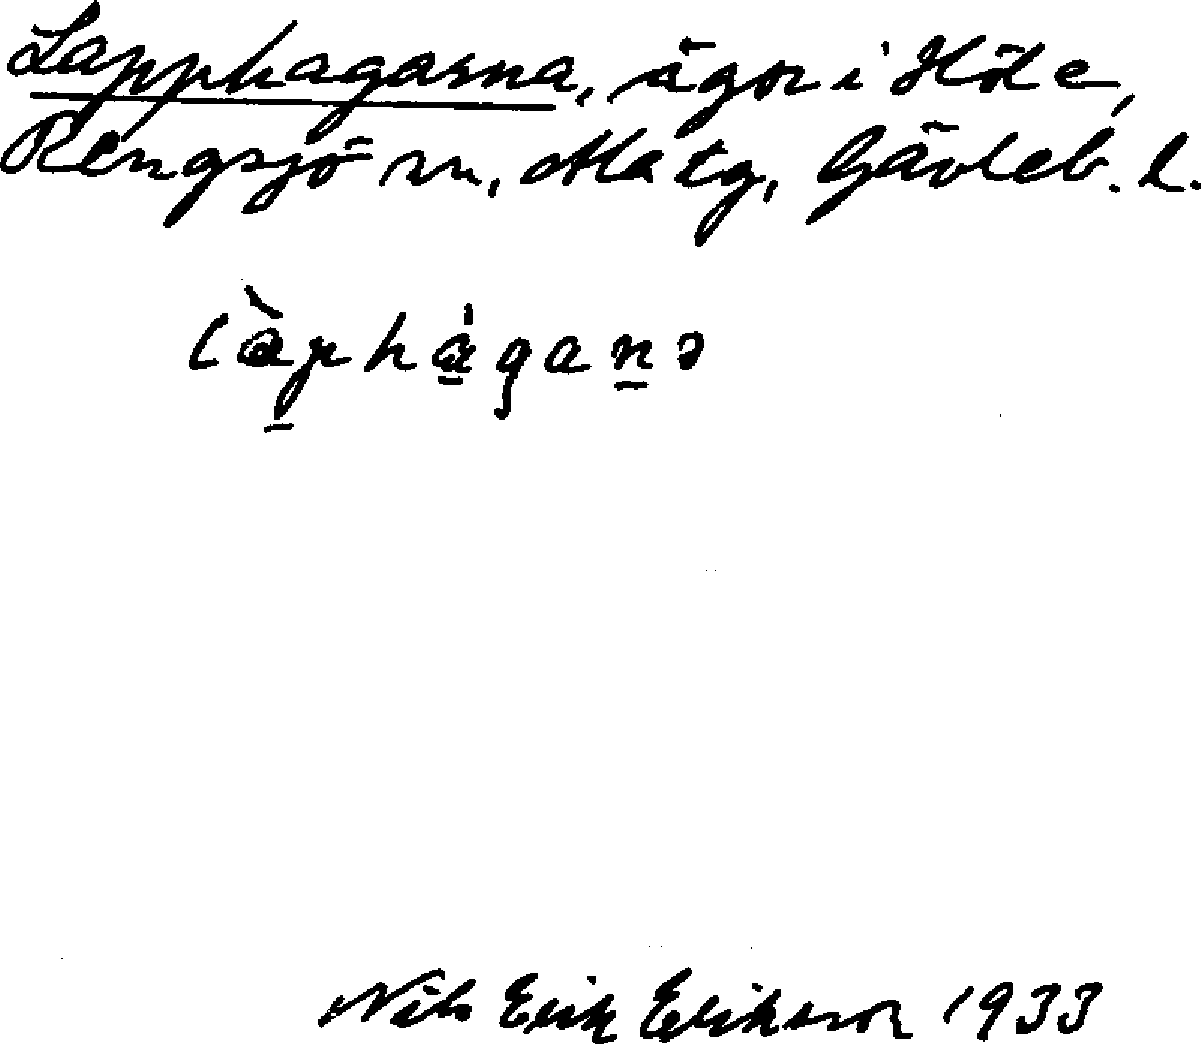 Lapphagarna, ägor i Höle,
Rengsjö sn, Ala tg, Gävleb. l.
làp̱hȧ̱gaṉə
Nils Erik Eriksson 1933